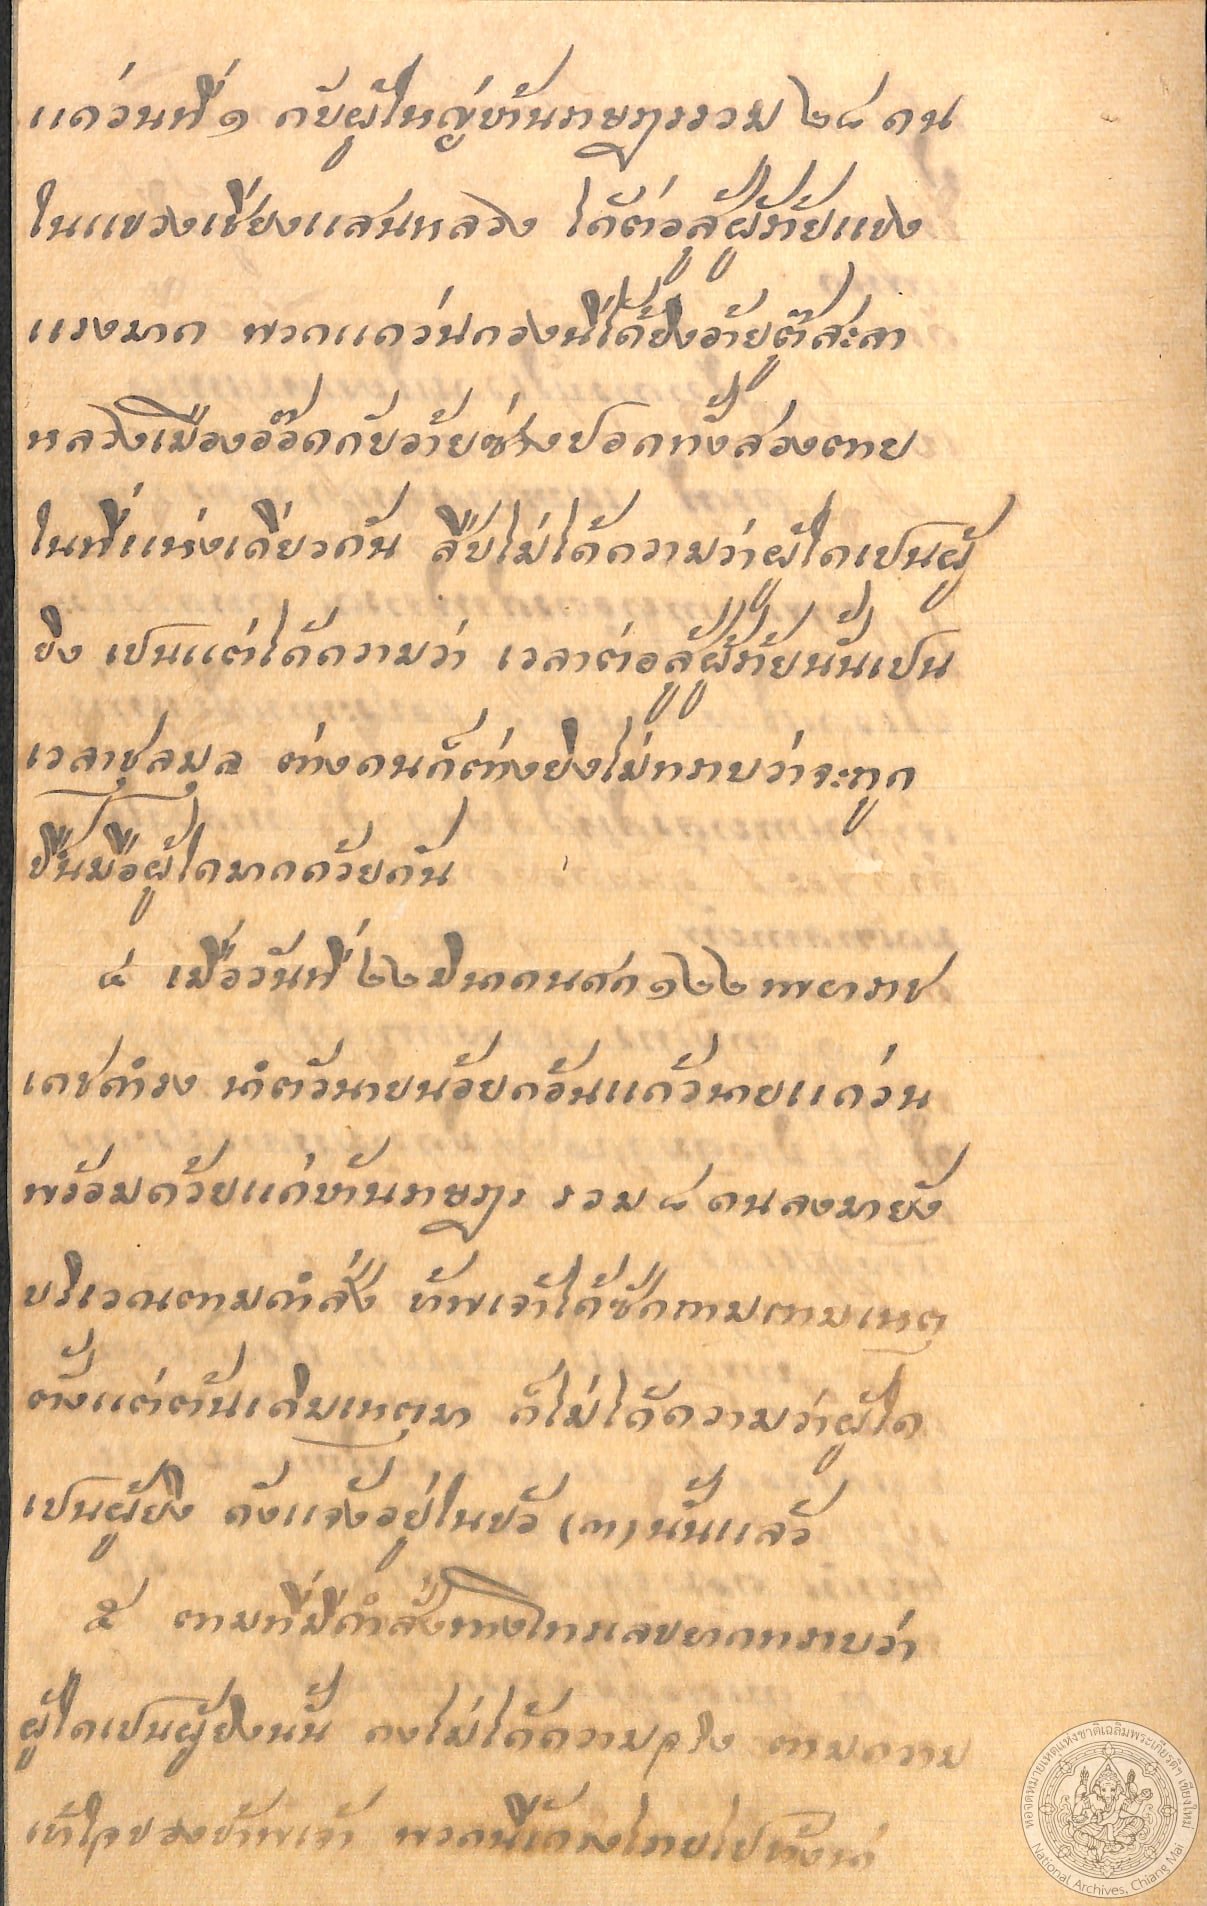 แคว่นที่ ๑ กับผู้ใหญ่บ้านราษฎรรวม ๒๘ คน
ในแขวงเชียงแสนหลวง ได้ต่อสู้ผู้ร้ายแขง
แรงมาก พวกแคว่นกองนี้ได้ยิงอ้ายตุ๊สะลา
หลวงเมืองอ๊อดกับอ้ายซ่างปอดทั้งสองตาย
ในที่แห่งเดียวกัน สืบไม่ได้ความว่าผู้ใดเปนผู้
ยิง เปนแต่ได้ความว่า เวลาต่อสู้ผู้ร้ายนั้นเปน
เวลาชุลมุล ต่างคนก็ต่างยิงไม่ทราบว่าจะถูก
ปืนมือผู้ใดมากด้วยกัน
๔ เมื่อวันที่ ๒๒ มีนาคมศก ๑๒๒ พยาราช
เดชดำรง นำตัวนายน้อยกอันแก้วนายแคว่น
พร้อมด้วยแก่บ้านราษฎร รวม ๘ คนลงมายัง
บริเวณตามคำสั่ง ข้าพเจ้าได้ซักถามตามเหตุ
ตั้งแต่ต้นเดิมเหตุมา ก็ไม่ได้ความว่าผู้ใด
เปนผู้ยิง ดังแจ้งอยู่ในข้อ (๓) นั้นแล้ว
๕ ตามที่มีคำสั่งทางโทรเลขอยากทราบว่า
ผู้ใดเปนผู้ยิงนั้น คงไม่ได้ความจริง ตามความ
เข้าใจของข้าพเจ้า พวกนี้